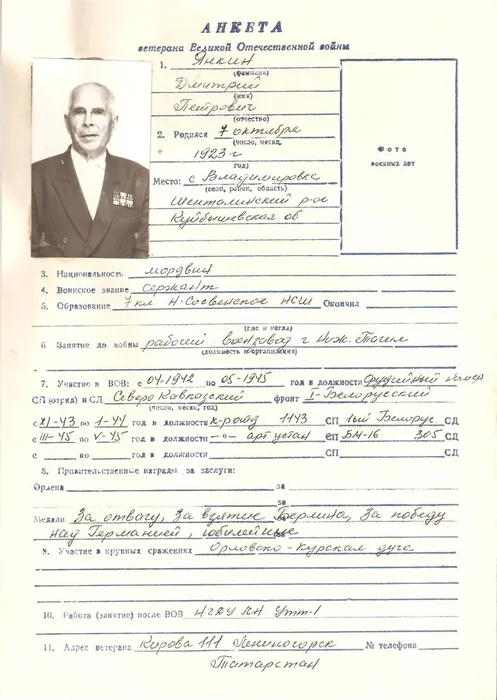 АНКЕТА
ветерана Великой Отечественной войны
1. Янкин
(фамилия)
Дмитрий
(имя)
Петрович
(отчество)
2. Родился 7 октября
(число, месяц,
1923 г
год)
Место: с Владимировка
(село, район, область)
Шенталинский р-он
Куйбышевская об
Фото
военных лет
3. Национальность мордвин
4. Воинское звание сержант
5. Образование 7 кл НСШ Окончил
(где и когда)
6 Занятие до войны рабочий г Ниж. Тагил
(должность и организация)
7. Участие в ВОВ: с 04-1942 по 05-1945 год в должности орудийный номер
СП (отряд) и СД Северо Кавказский фронт I-Белорусский
(число, месяц, год)
с XI-43 по 1-44 год в должности к-р отд 1143 СП 1ый Белорус СД
с III-45 по V-45 год в должности —"— арт устан СП БМ-16 305 СД
с по год в должности СП СД
8. Правительственные награды за заслуги:
Ордена за
за
Медали За отвагу, За взятие Берлина, За победу
над Германией, юбилейные
9. Участие в крупных сражениях Орловско-курская дуга
10. Работа (занятие) после ВОВ НГДУ ЛН УТТ-1
11. Адрес ветерана Кирова 111 Лениногорск № телефона
Татарстан